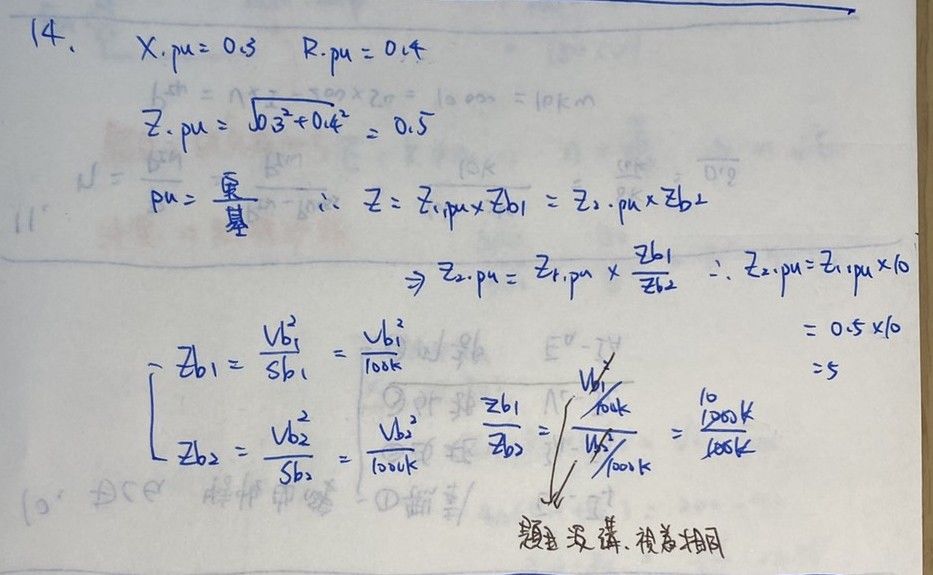 14.
X.pu = 0.3 R.pu = 0.4
Z.pu = √0.3²+0.4² = 0.5
pu = 實/基 ∴ Z = Z₁.pu × Zb1 = Z₂.pu × Zb2
⇒ Z₂.pu = Z₁.pu × Zb1/Zb2 ∴ Z₂.pu = Z₁.pu × 10
= 0.5 × 10
= 5
Zb1 = Vb₁²/Sb₁ = Vb₁²/100k
Zb2 = Vb2²/Sb₂ = Vb₂²/1000k
Zb1/Zb2 = Vb₁²/100k / Vb₂²/1000k = 10 1000k/100k
題目沒講、視為相同